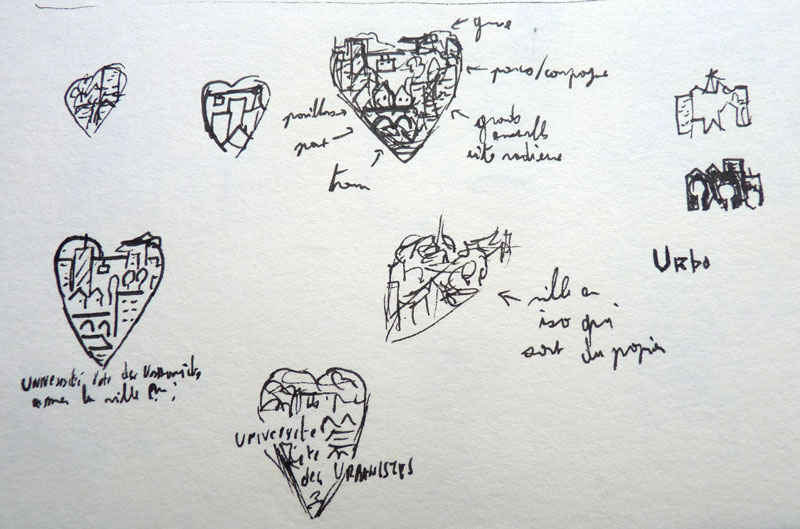 grue
parcs/campagne
pavillons
pont
grands
ensembles
cité radieuse
tram
Urbo
ville en
iso qui
sort du papier
UNIVERSITÉ été des Urbanistes
aimer la ville
UNIVERSITE
été
des URBANISTES